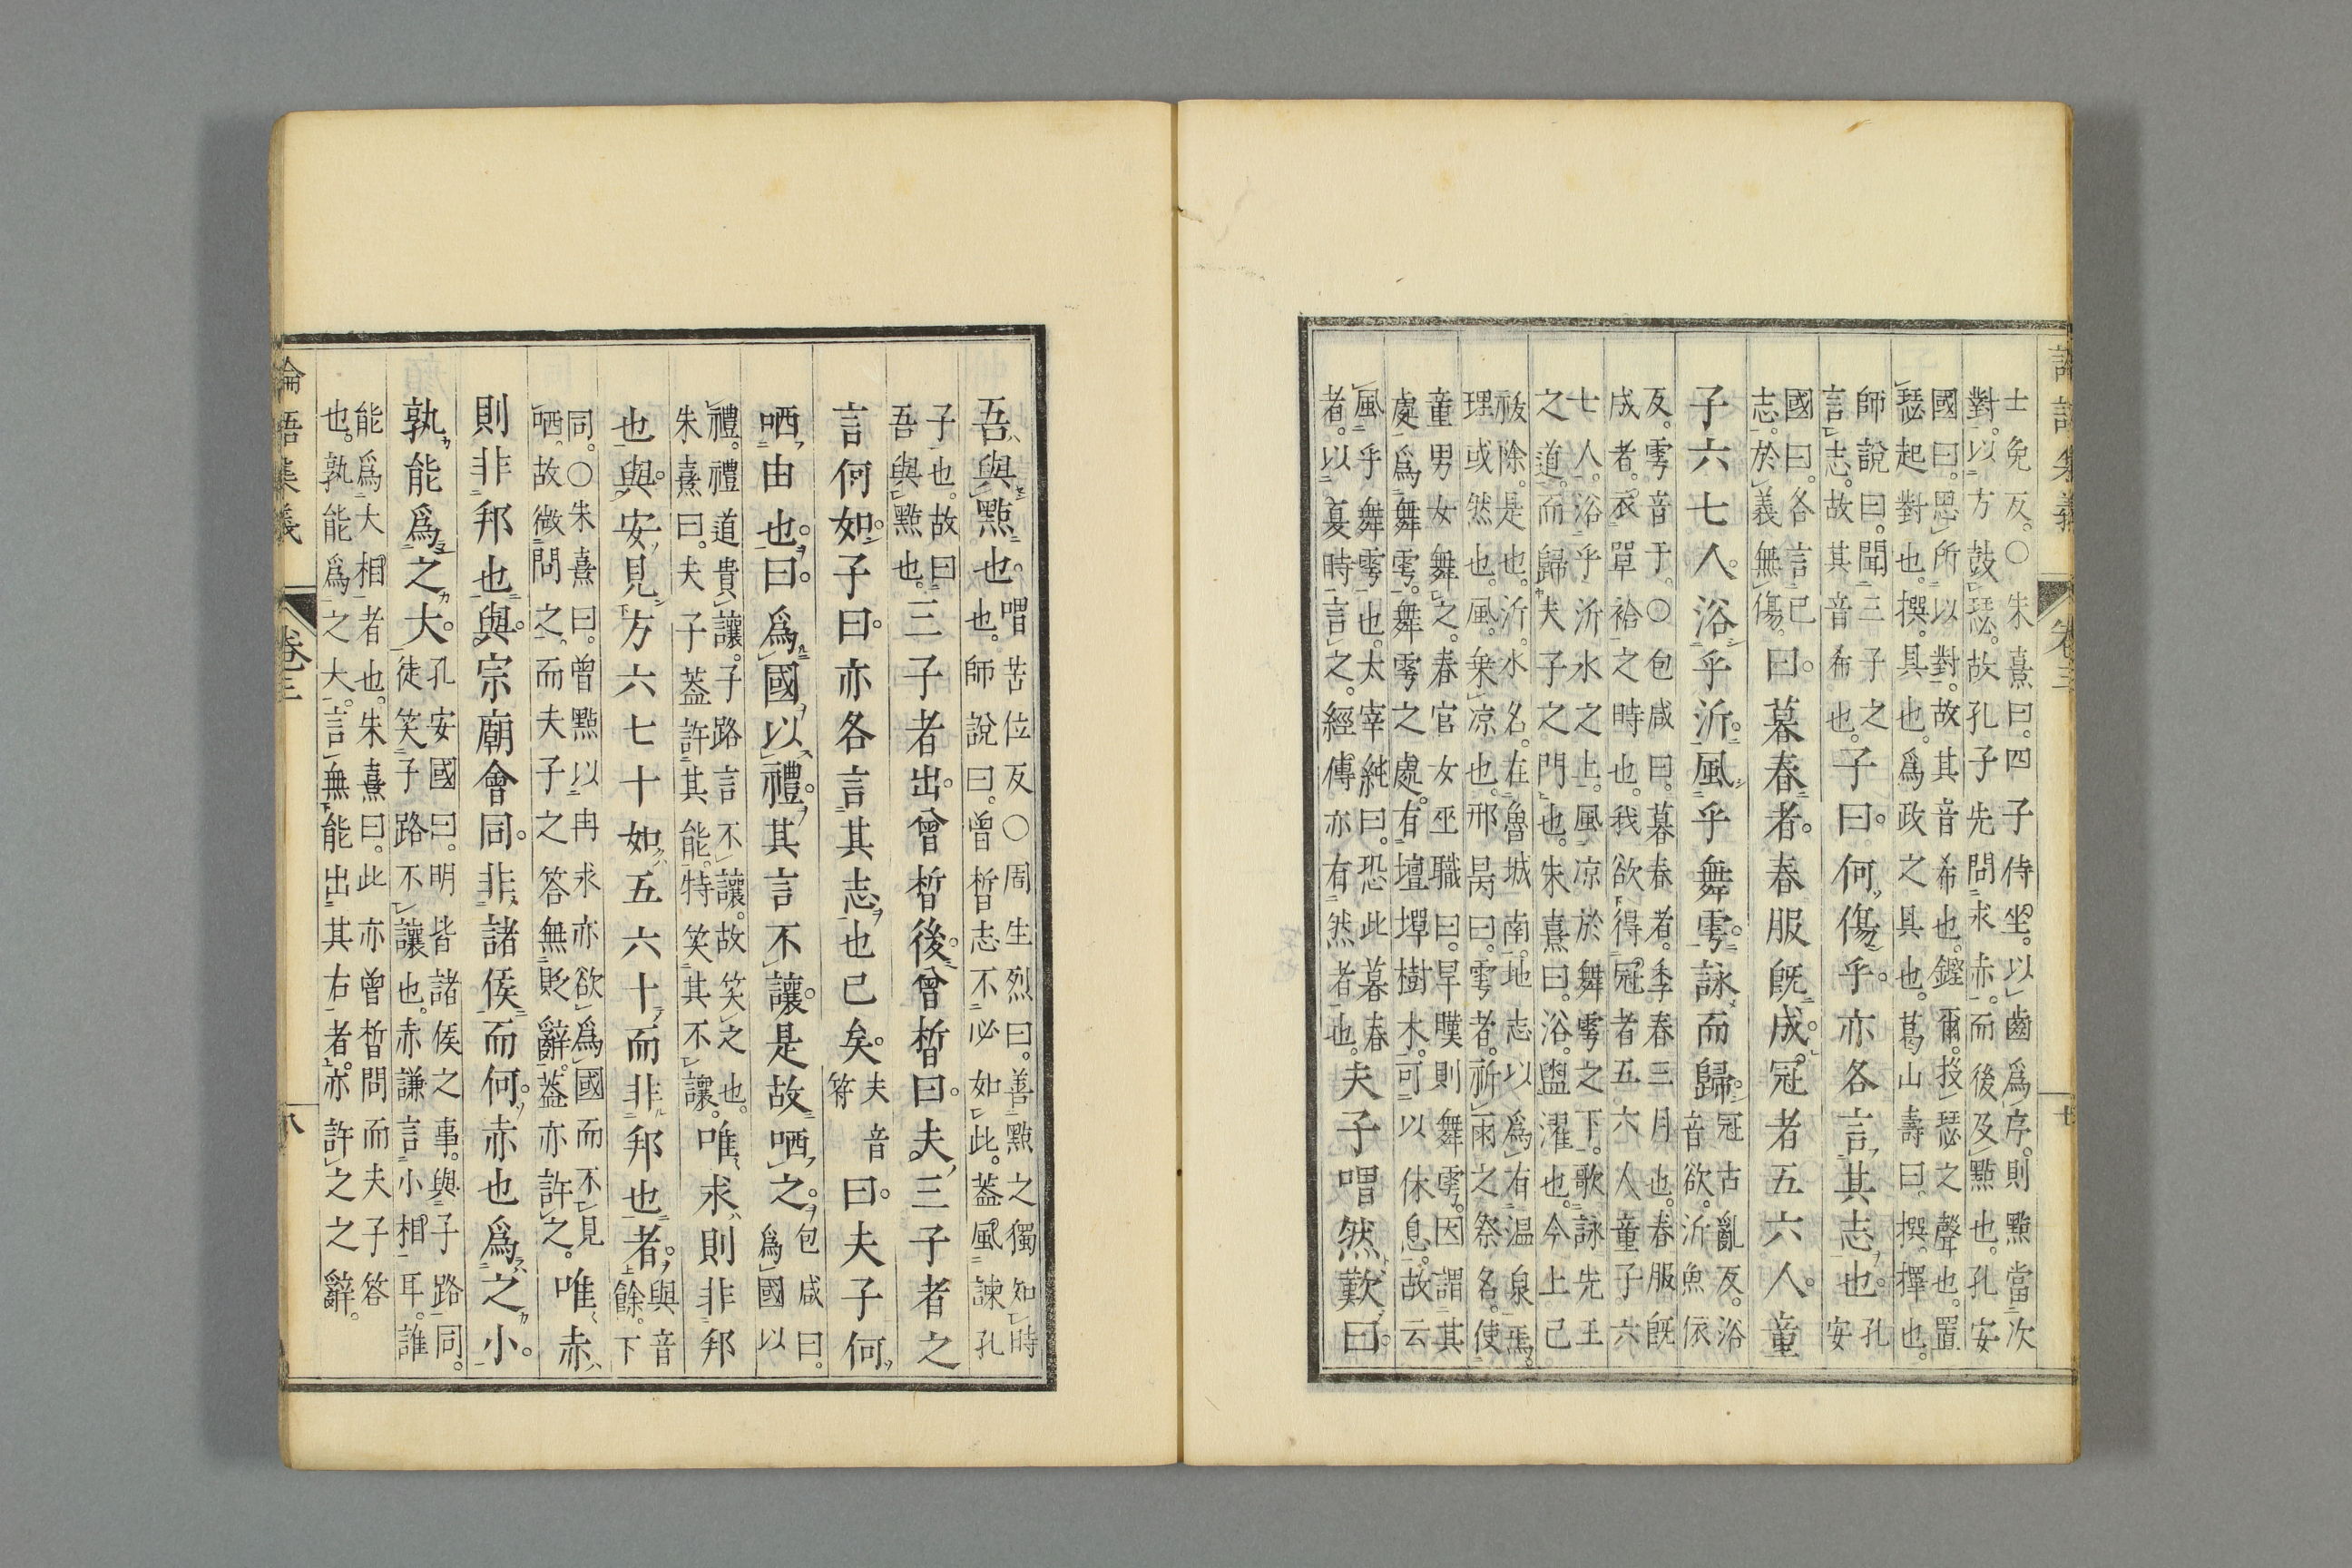 論語集義　卷三　七
士免反。○朱熹曰。四子侍坐。以齒爲序。則點當次
對。以方鼓瑟。故孔子先問求赤。而後及點也。孔安
國曰。思所以對。故其音希也。鏗爾。投瑟之聲也。置
瑟起對也。撰。具也。爲政之具也。葛山壽曰。撰。擇也。
師說曰。聞三子之
言志。故其音希也。
子曰。何傷乎。亦各言其志也。
孔
安
國曰。各言己
志。於義無傷。
曰。暮春者。春服既成。冠者五六人。童
子六七人。浴乎沂。風乎舞雩。詠而歸。
冠古亂反。浴
音欲。沂魚依
反。雩音于。○包咸曰。暮春者。季春三月也。春服既
成者。衣單袷之時也。我欲得冠者五六人童子六
七人。浴乎沂水之上。風凉於舞雩之下。歌詠先王
之道。而歸夫子之門也。朱熹曰。浴。盥濯也。今上己
祓除。是也。沂水名。在魯城南。地志以爲有温泉焉。
理或然也。風。乗凉也。邢昺曰。雩者。祈雨之祭名。使
童男女舞之。春官女巫職曰。旱暵則舞雩。因謂其
處爲舞雩。舞雩之處。有壇墠樹木。可以休息。故云
風乎舞雩也。太宰純曰。恐此暮春
者。以夏時言之。經傳亦有然者也。
夫子喟然歎曰。
吾與點也。
喟苦位反○周生烈曰。善點之獨知時
也。師說曰。曾晳志不必如此。葢風諫孔
子也。故曰
吾與點也。
三子者出。曾晳後。曾晳曰。夫三子者之
言何如。子曰。亦各言其志也已矣。
夫音
符
曰。夫子何
哂由也。曰。爲國以禮。其言不讓。是故哂之。
包咸曰。
爲國以
禮。禮道貴讓。子路言不讓。故笑之也。
朱熹曰。夫子葢許其能。特笑其不讓。
唯求則非邦
也與。安見方六七十如五六十而非邦也者。
與音
餘。下
同。○朱熹曰。曾點以冉求亦欲爲國而不見
哂。故微問之。而夫子之答無貶辭。葢亦許之。
唯赤
則非邦也與。宗廟會同。非諸侯而何。赤也爲之小。
孰能爲之大。
孔安國曰。明皆諸侯之事。與子路同。
徒笑子路不讓也。赤謙言小相耳。誰
能爲大相者也。朱熹曰。此亦曾晳問而夫子答
也。孰能爲之大。言無能出其右者。亦許之之辭。
論語集義　卷三　八